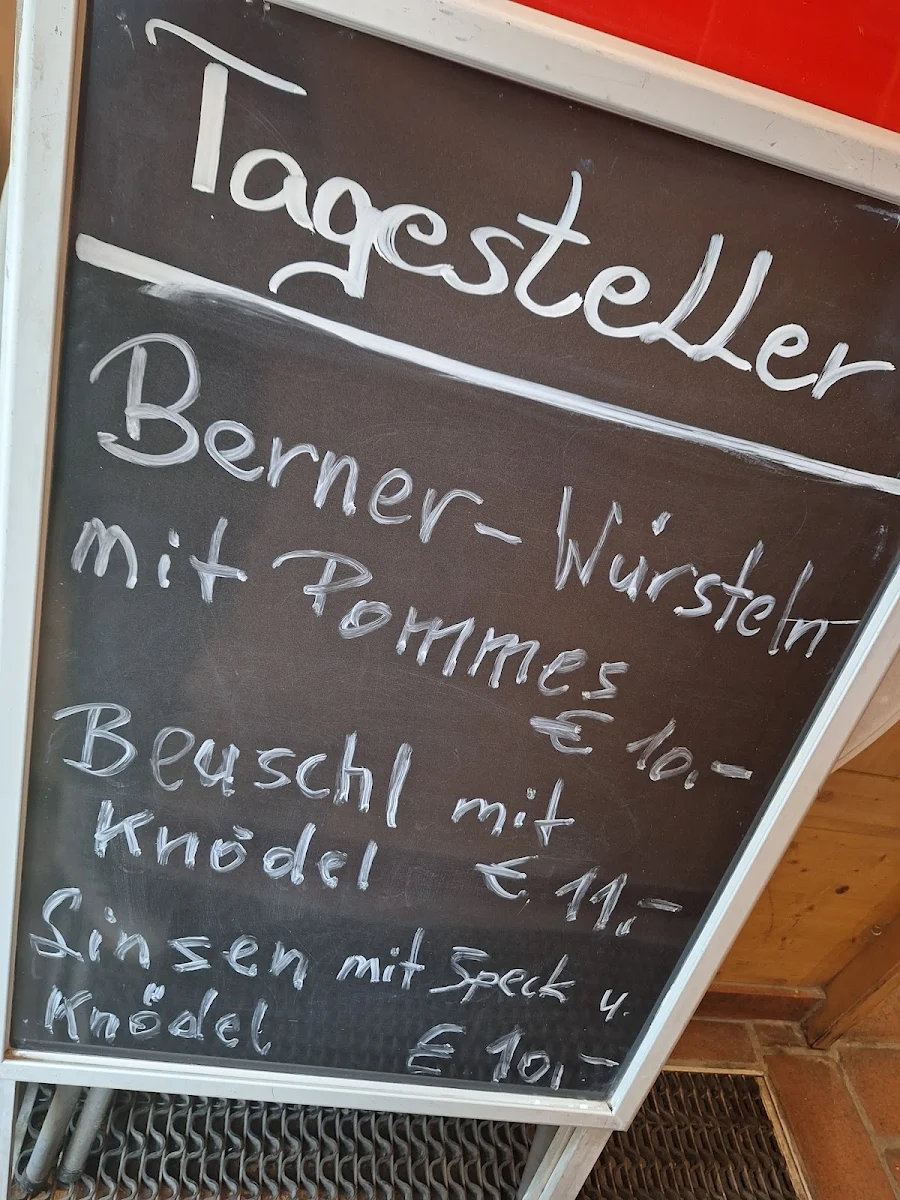 Tagesteller
Berner-Würsteln
mit Pommes
€ 10,-
Beuschl mit
Knödel € 11,-
Linsen mit Speck u.
Knödel € 10,-